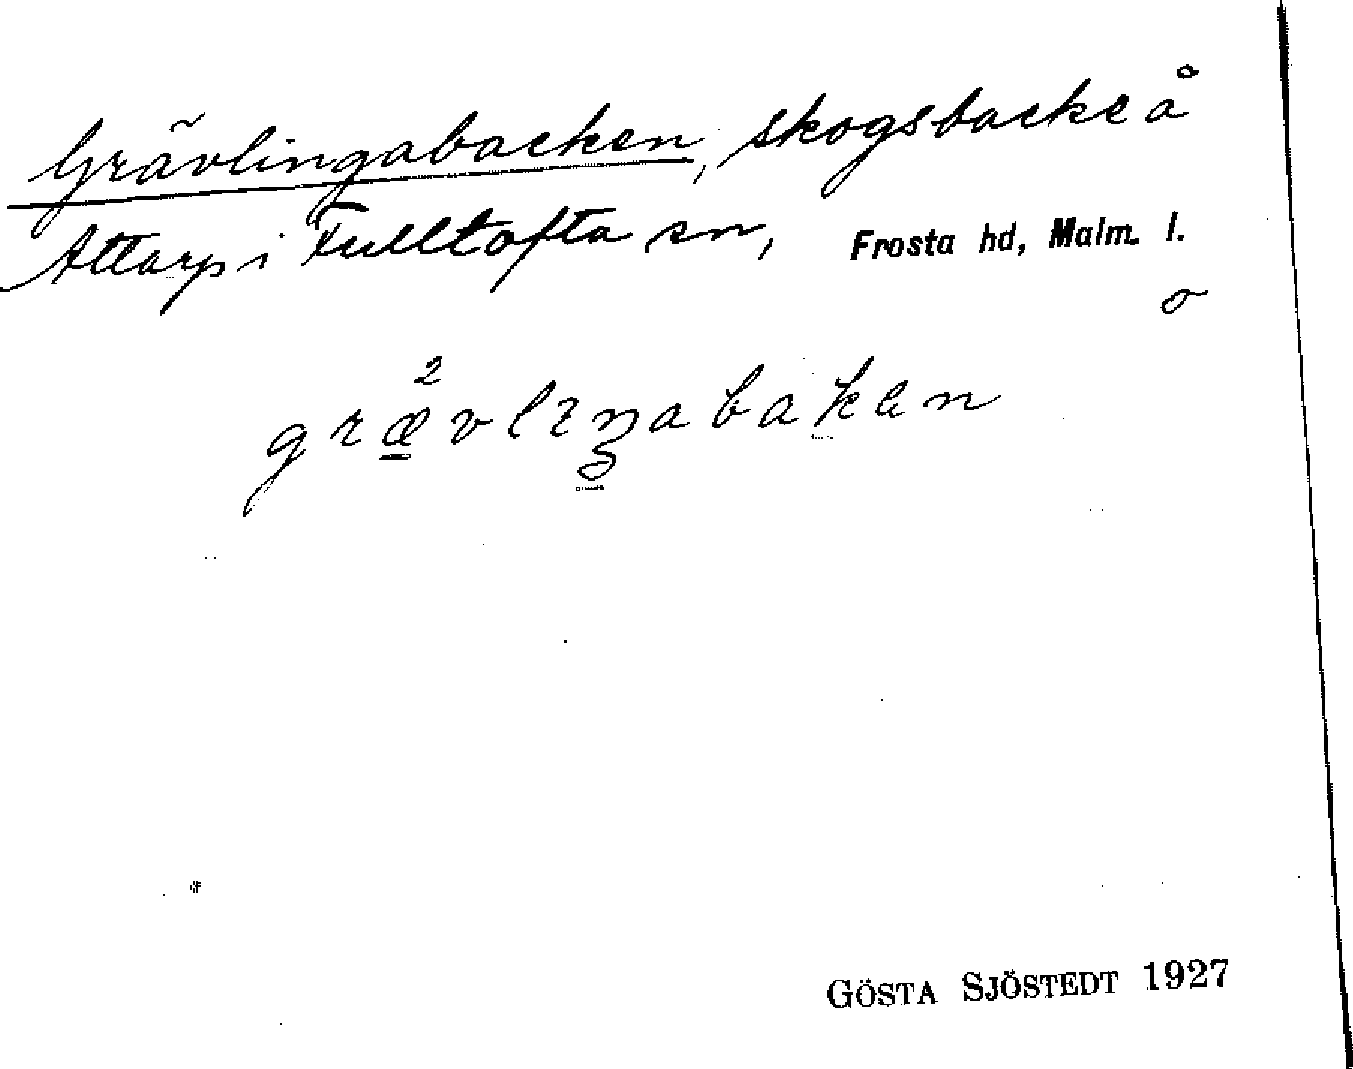 Grävlingabacken, skogsbacke å
Attarp i Fulltofta sn, Frosta hd, Malm. l.
GÖSTA SJÖSTEDT 1927